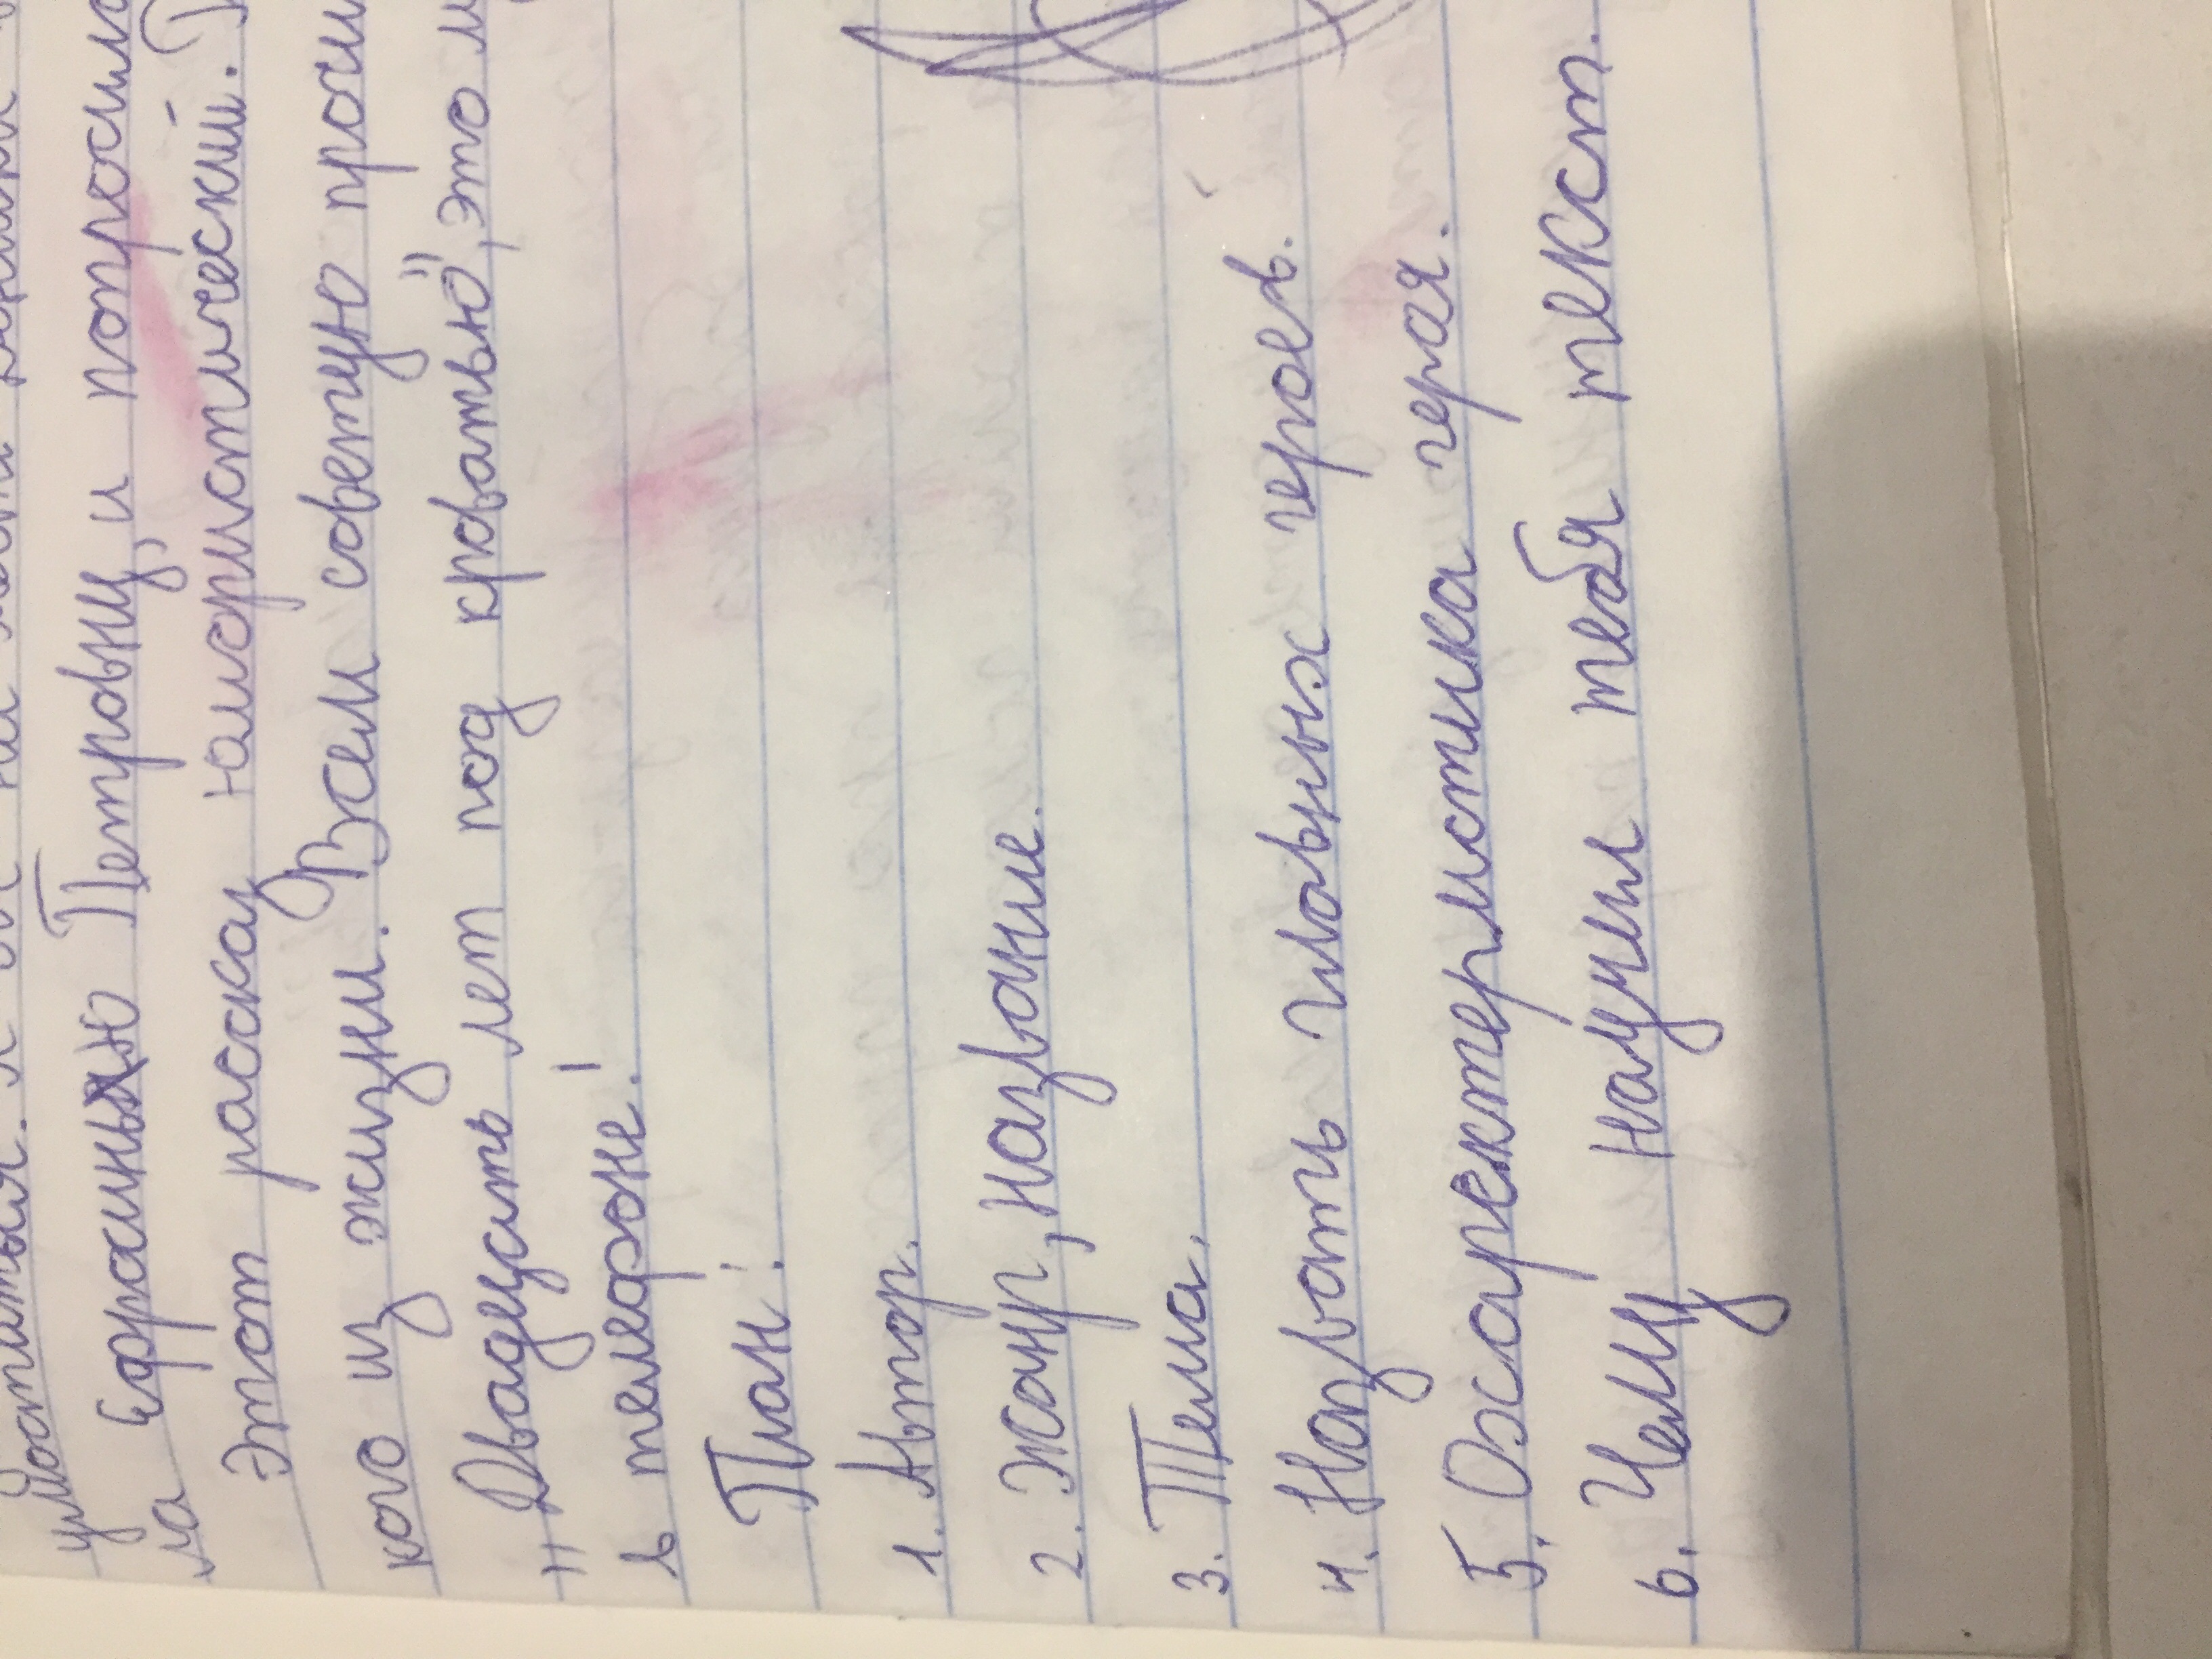 Ефросинью Петровну, и попросила
Этот расказ юмористический.
кого из жизни. Всем советую прочи
"Двадцать лет под кроватью", это л
в телефоне!
План:
1. Автор.
2. Жанр, название.
3. Тема.
4. Назвать главных героев.
5. Охаректермстика героя.
6. Чему научил тебя текст.